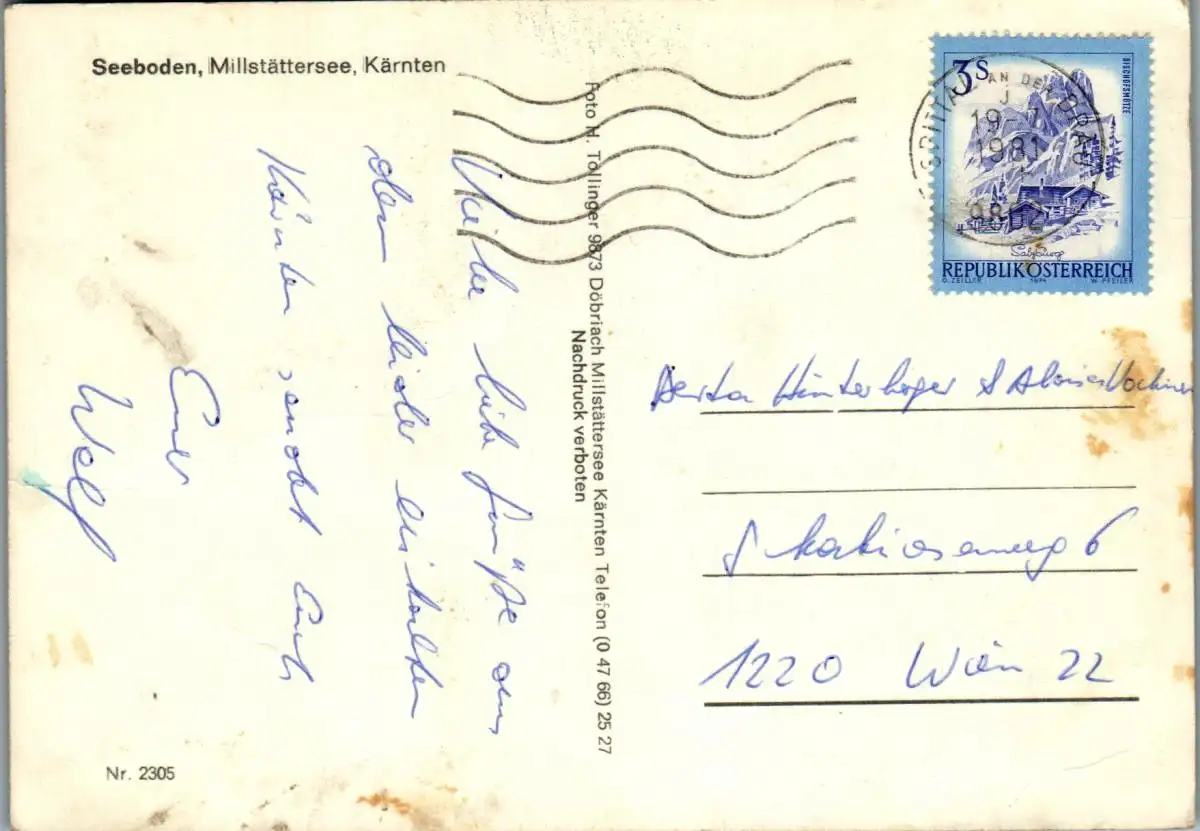 Seeboden, Millstättersee, Kärnten
Viele liebe Grüße aus
dem leider eiskalten
Kärnten sendet Euch
Euer
Foto H. Tollinger 9873 Döbriach Millstättersee Kärnten Telefon (0 47 66) 25 27
Nachdruck verboten
3 S
BISCHOFSMÜTZE
Salzburg
REPUBLIK ÖSTERREICH
O. ZEILLER 1974 W. PFEILER
SPITTAL AN DER DRAU
19-7
1981
9802
Berta Hinterhoger &
6
1220 Wien 22
Nr. 2305